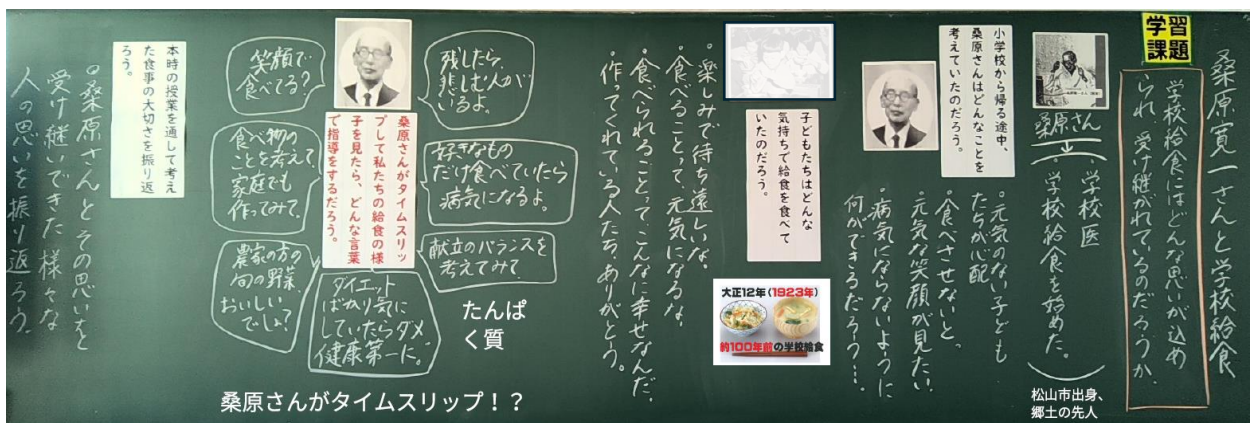 桑原寛一さんと学校給食
学習
課題
学校給食にはどんな思いが込め
られ、受け継がれているのだろうか。
桑原さん
・学校医
・学校給食を始めた。
松山市出身、
郷土の先人
小学校から帰る途中、
桑原さんはどんなことを
考えていたのだろう。
・元気のない子ども
たちが心配
・食べさせないと。
・元気な笑顔が見たい。
・病気にならないように
何ができるだろう…。
子どもたちはどんな
気持ちで給食を食べて
いたのだろう。
大正12年(1923年)
約100年前の学校給食
・楽しみで待ち遠しいな。
・食べることって、元気になるな。
・食べられることってこんなに幸せなんだ。
・作ってくれている人たち、ありがとう。
桑原さんがタイムスリッ
プして私たちの給食の様
子を見たら、どんな言葉
で指導をするだろう。
残したら、
悲しむ人が
いるよ。
好きなもの
だけ食べていたら
病気になるよ。
献立のバランスを
考えてみて
たんぱ
く質
笑顔で
食べてる?
食べ物の
ことを考えて
家庭でも
作ってみて。
農家の方の
旬の野菜、
おいしい
でしょ?
ダイエット
ばかり気に
していたらダメ。
健康第一に。
桑原さんがタイムスリップ!?
本時の授業を通して考え
た食事の大切さを振り返
ろう。
・桑原さんとその思いを
受け継いできた様々な
人の思いを振り返ろう。